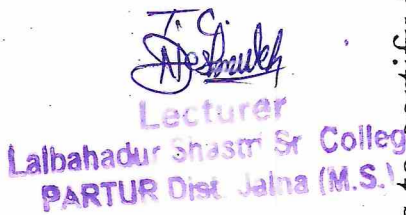 Deshmukh
Lecturer
Lalbahadur Shastri Sr Colleg
PARTUR Dist. Jalna (M.S.)